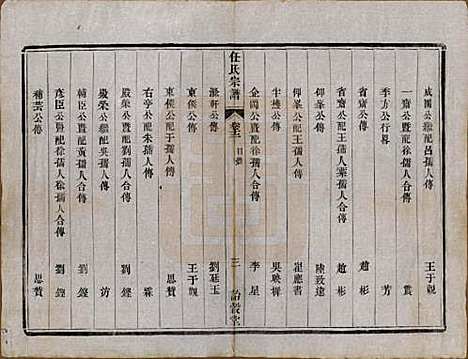 咸園公繼配呂孺人傳 王于觀
一齋公暨配徐孺人合傳 黃
季方公行畧 芳
省齋公傳 趙彬
省齋公配王孺人葉孺人合傳 趙彬
仰峯公傳 陸致遠
仰峯公配王孺人傳 崔應書
牛塘公傳 吳映樨
金園公暨配徐孺人合傳 李星
任氏宗譜
卷二
目錄
三
詒穀堂
漎軒公傳 劉廷玉
東侯公傳 王于觀
東侯公配于孺人傳 思贊
右亭公配朱孺人傳 霖
殿榮公暨配劉孺人合傳 劉鏗
綏榮公配吳孺人傳 訪
輔臣公暨配黃孺人合傳 劉鏗
彥臣公暨配徐孺人徐孺人合傳 劉鏗
補芸公傳 思贊